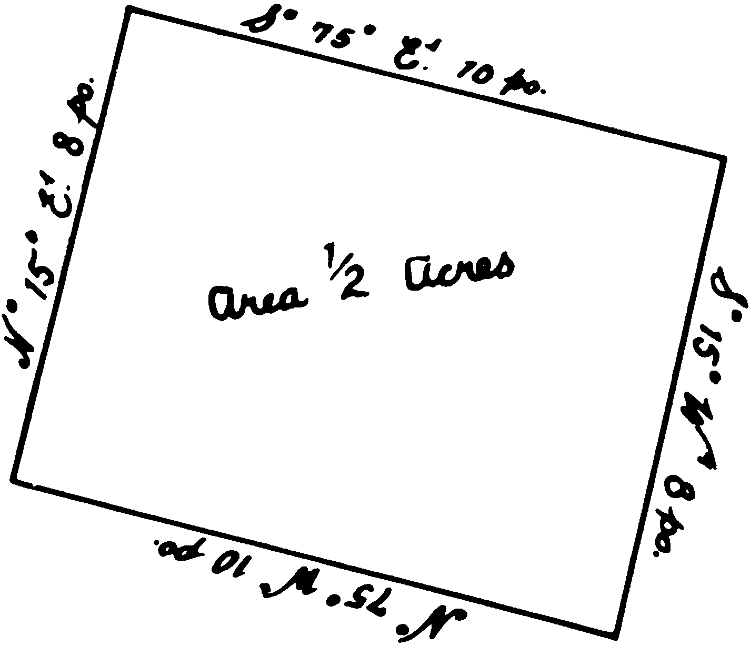 S° 75° E.t 10 po.
N° 15° E.t 8 po.
Area 1/2 Acres
S° 15° W.t 8 po.
N° 75° W.t 10 po.